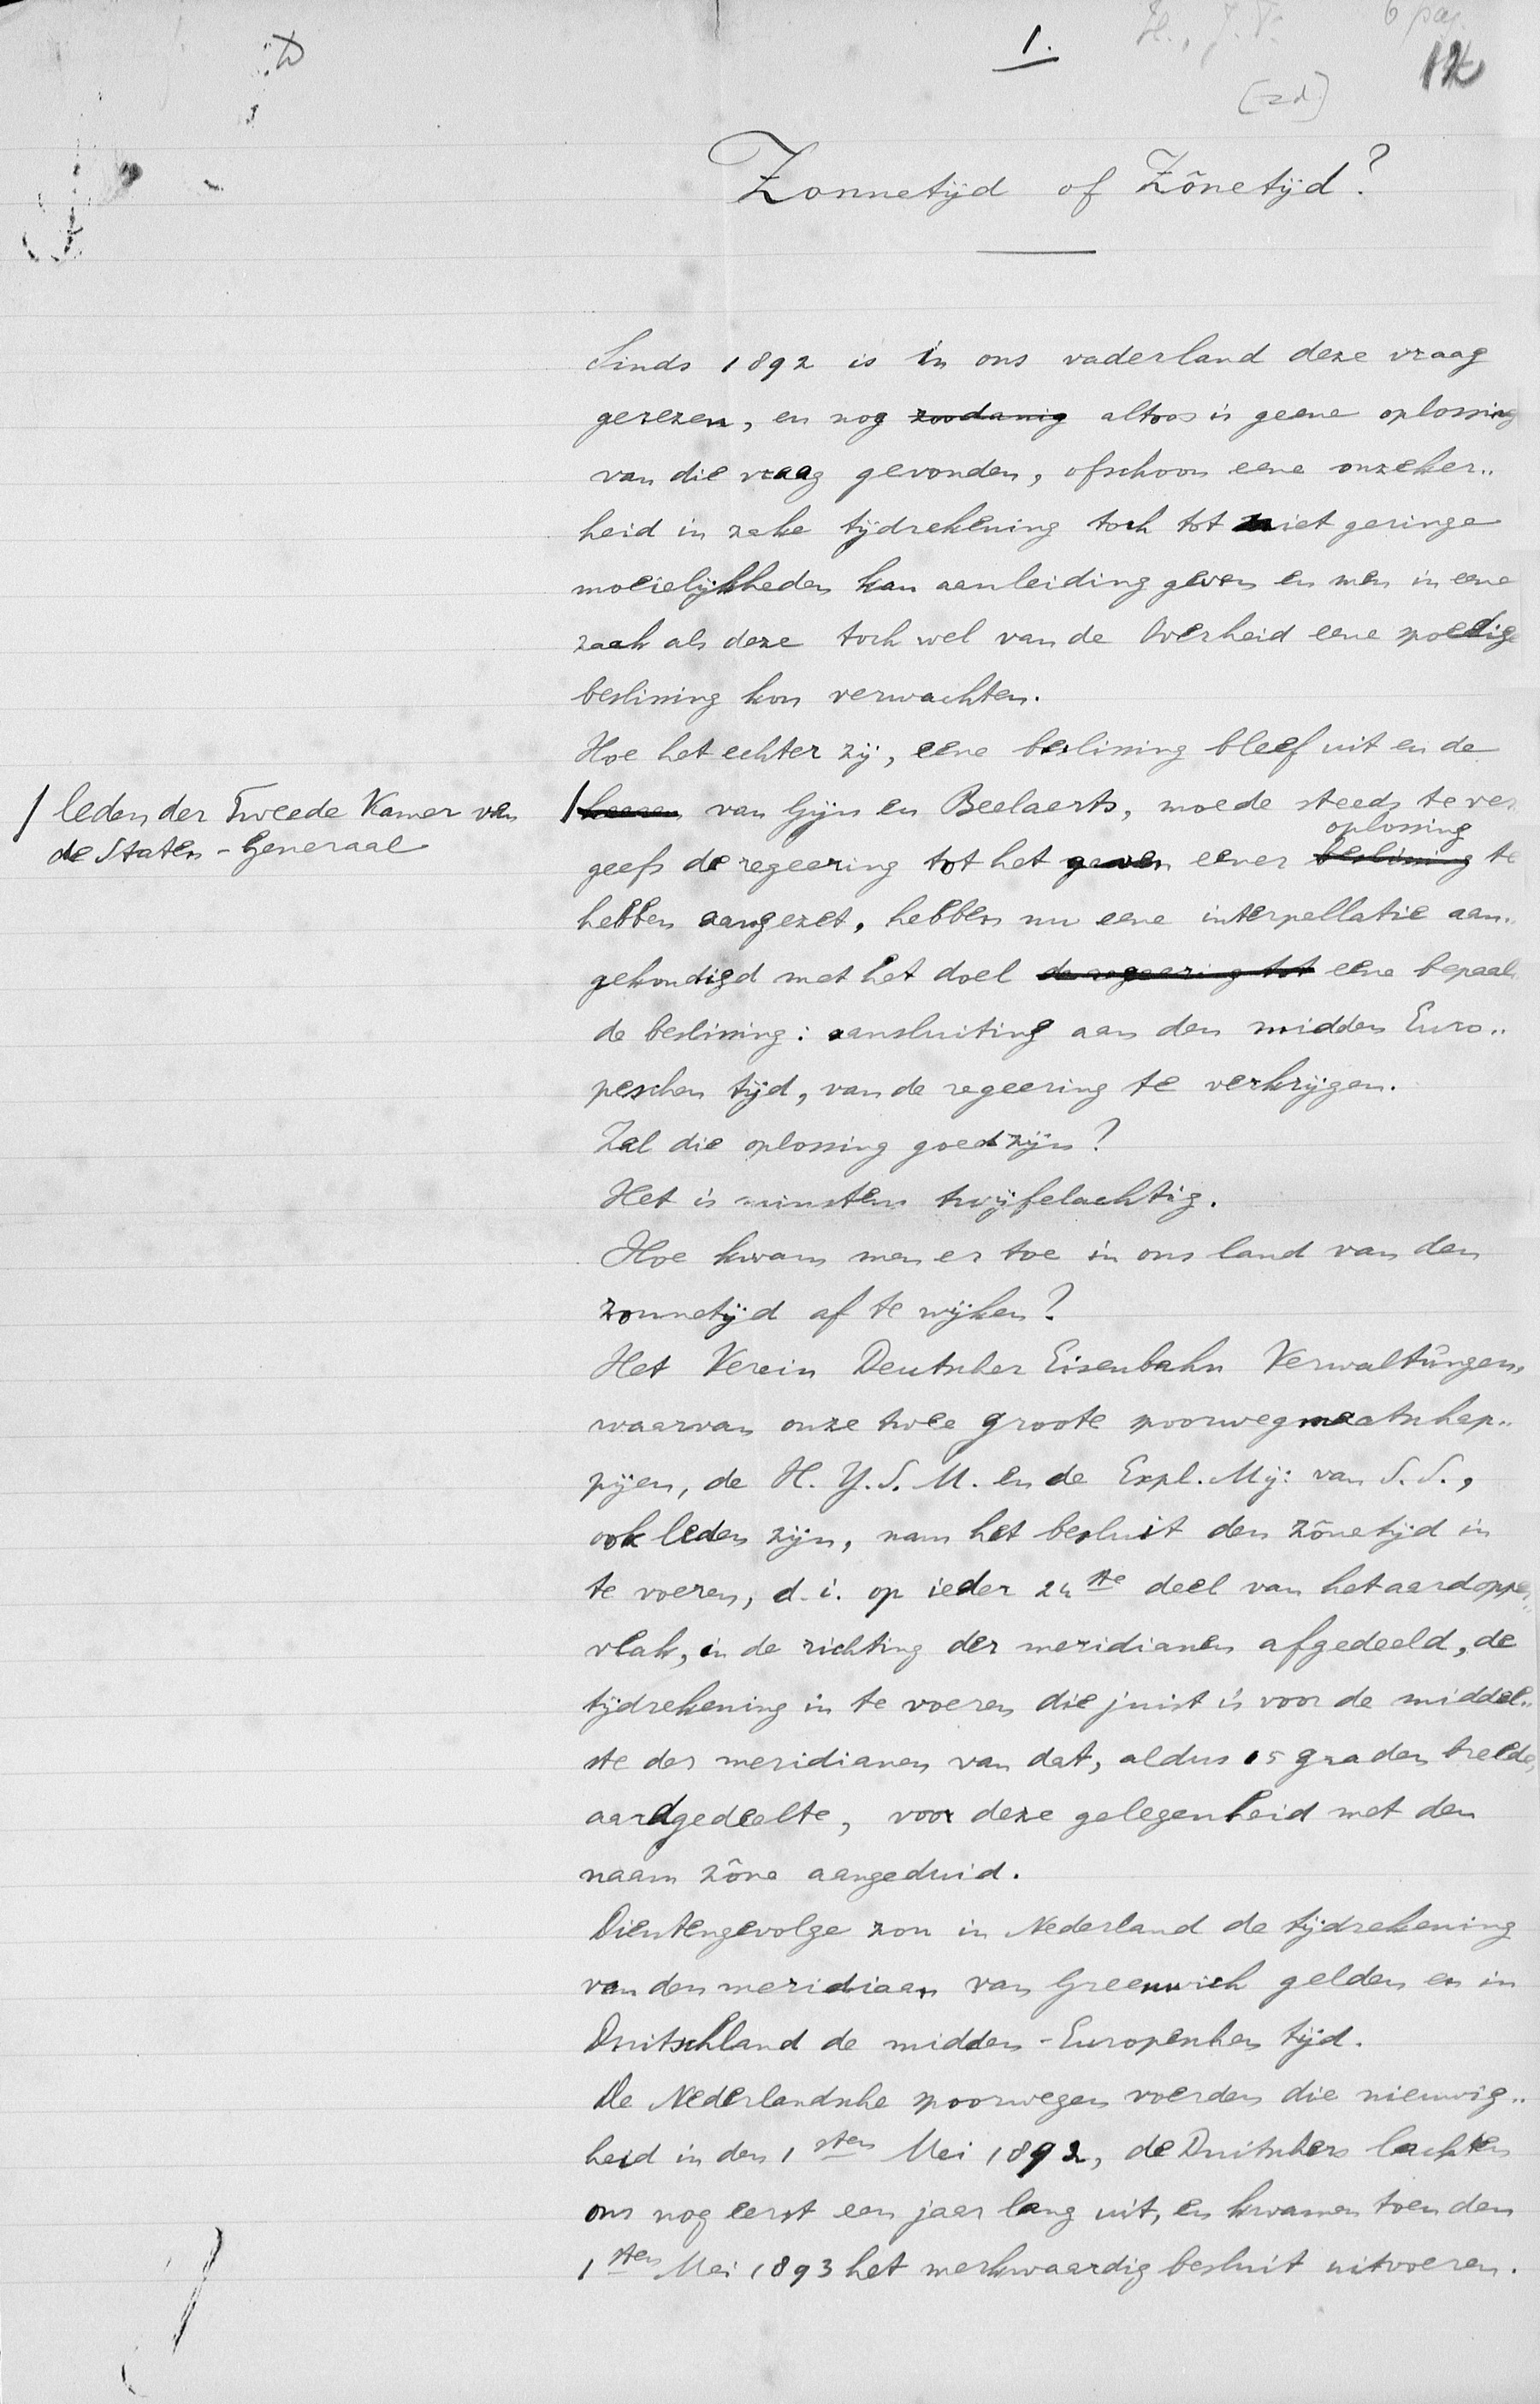 1.
H., J. F.
6 pag.
12
[zd]
Zonnetijd of Zônetijd?
Sinds 1892 is in ons vaderland deze vraag
gerezen, en nog zoodanig altoos is geene oplossing
van die vraag gevonden, ofschoon eene onzeker..
heid in zake tijdrekening toch tot niet geringe
moeielijkheden kan aanleiding geven en men in eene
zaak als deze toch wel van de Overheid eene spoedige
beslissing kon verwachten.
Hoe het echter zij, eene beslissing bleef uit en de
/ leden der Tweede Kamer van
de Staten-Generaal
/ heeren van Gijn en Beelaerts, moede steeds te ver
oplossing
geefs de regeering tot het geven eener beslissing te
hebben aangezet, hebben nu eene interpellatie aan..
gekondigd met het doel de regeering tot eene bepaal
de beslissing: aansluiting aan den midden Euro..
peschen tijd, van de regeering te verkrijgen.
Zal die oplossing goed zijn?
Het is minstens twijfelachtig.
Hoe kwam men er toe in ons land van den
zonnetijd af te wijken?
Het Verein Deutscher Eisenbahn Verwaltûngen,
waarvan onze twee groote spoorwegmaatschap..
pijen, de H. Y. S. M. en de Expl. Mij: van S. S.,
ook leden zijn, nam het besluit den zônetijd in
te voeren, d. i. op ieder 24ste deel van het aardopper..
vlak, in de richting der meridianen afgedeeld, de
tijdrekening in te voeren die juist is voor de middel..
ste der meridianen van dat, aldus 15 graden breede,
aardgedeelte, voor deze gelegenheid met den
naam zône aangeduid.
Dientengevolge zou in Nederland de tijdrekening
van den meridiaan van Greenwich gelden en in
Duitschland de midden-Europeschen tijd.
De Nederlandsche spoorwegen voerden die nieuwig..
heid in den 1sten Mei 1892, de Duitschers lachten
ons nog eerst een jaar lang uit, en kwamen toen den
1sten Mei 1893 het merkwaardig besluit uitvoeren.